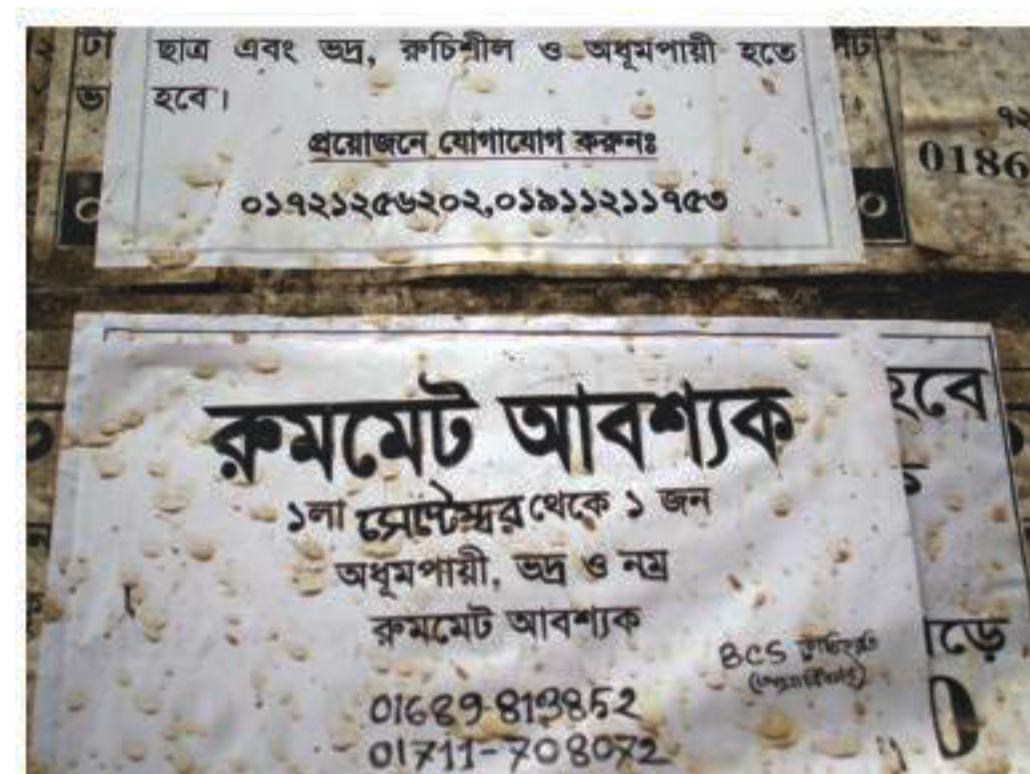 টা
ভা
ছাত্র এবং ভদ্র, রুচিশীল ও অধূমপায়ী হতে
হবে।
প্রয়োজনে যোগাযোগ করুনঃ
০১৭২১২৫৬২০২,০১৯১১২১১৭৫৩
৭২
0186
রুমমেট আবশ্যক
১লা সেপ্টেম্বর থেকে ১ জন
অধূমপায়ী, ভদ্র ও নম্র
রুমমেট আবশ্যক
BCS
01689-813852
01711-708072
হবে